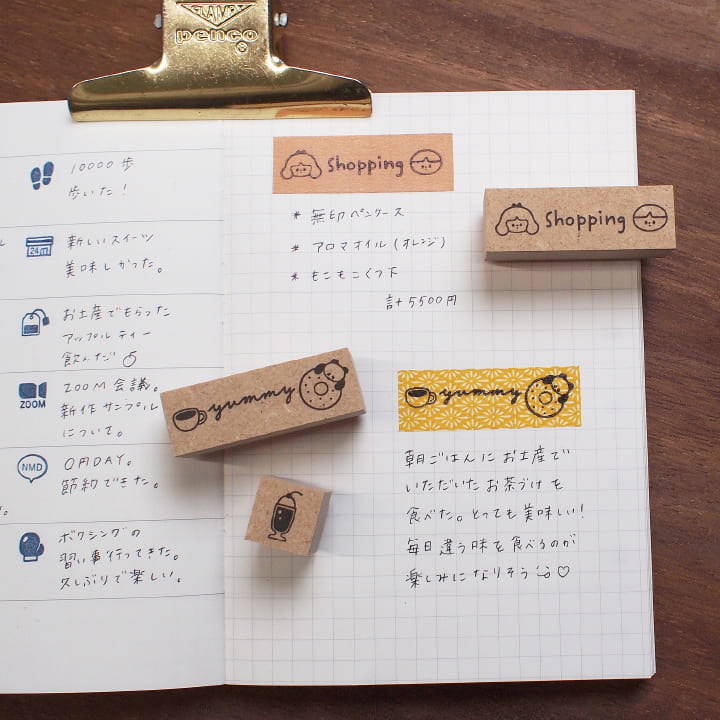 STAMP
penco
10000歩
歩いた！
24H
新しいスイーツ
美味しかった。
お土産でもらった
アップルティー
飲んだ
ZOOM
ZOOM会議。
新作サンプル
について。
NMD
0円DAY。
節約できた。
ボクシングの
習い事行ってきた。
久しぶりで楽しい。
Shopping
＊ 無印ペンケース
＊ アロマオイル（オレンジ）
＊ もこもこくつ下
計 5500円
Shopping
yummy
yummy
朝ごはんにお土産で
いただいたお茶づけを
食べた。とっても美味しい！
毎日違う味を食べるのが
楽しみになりそう♡